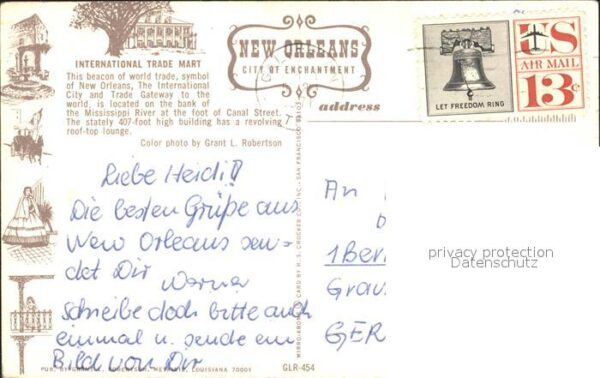 INTERNATIONAL TRADE MART
This beacon of world trade, symbol
of New Orleans, The International
City and Trade Gateway to the
world, is located on the bank of
the Mississippi River at the foot of Canal Street.
The stately 407-foot high building has a revolving
roof-top lounge.
Color photo by Grant L. Robertson
NEW ORLEANS
CITY OF ENCHANTMENT
address
LET FREEDOM RING
US
AIR MAIL
13c
Liebe Heidi!!
Die besten Grüße aus
New Orleans sen=
det Dir Werner
schreibe doch bitte auch
einmal u. sende ein
Bild von Dir
An
1 Ber
Grau
GER
privacy protection
Datenschutz
MIRRO-KROME CARD BY H. S. CROCKER CO., INC., SAN FRANCISCO
LOUISIANA 70001
GLR-454